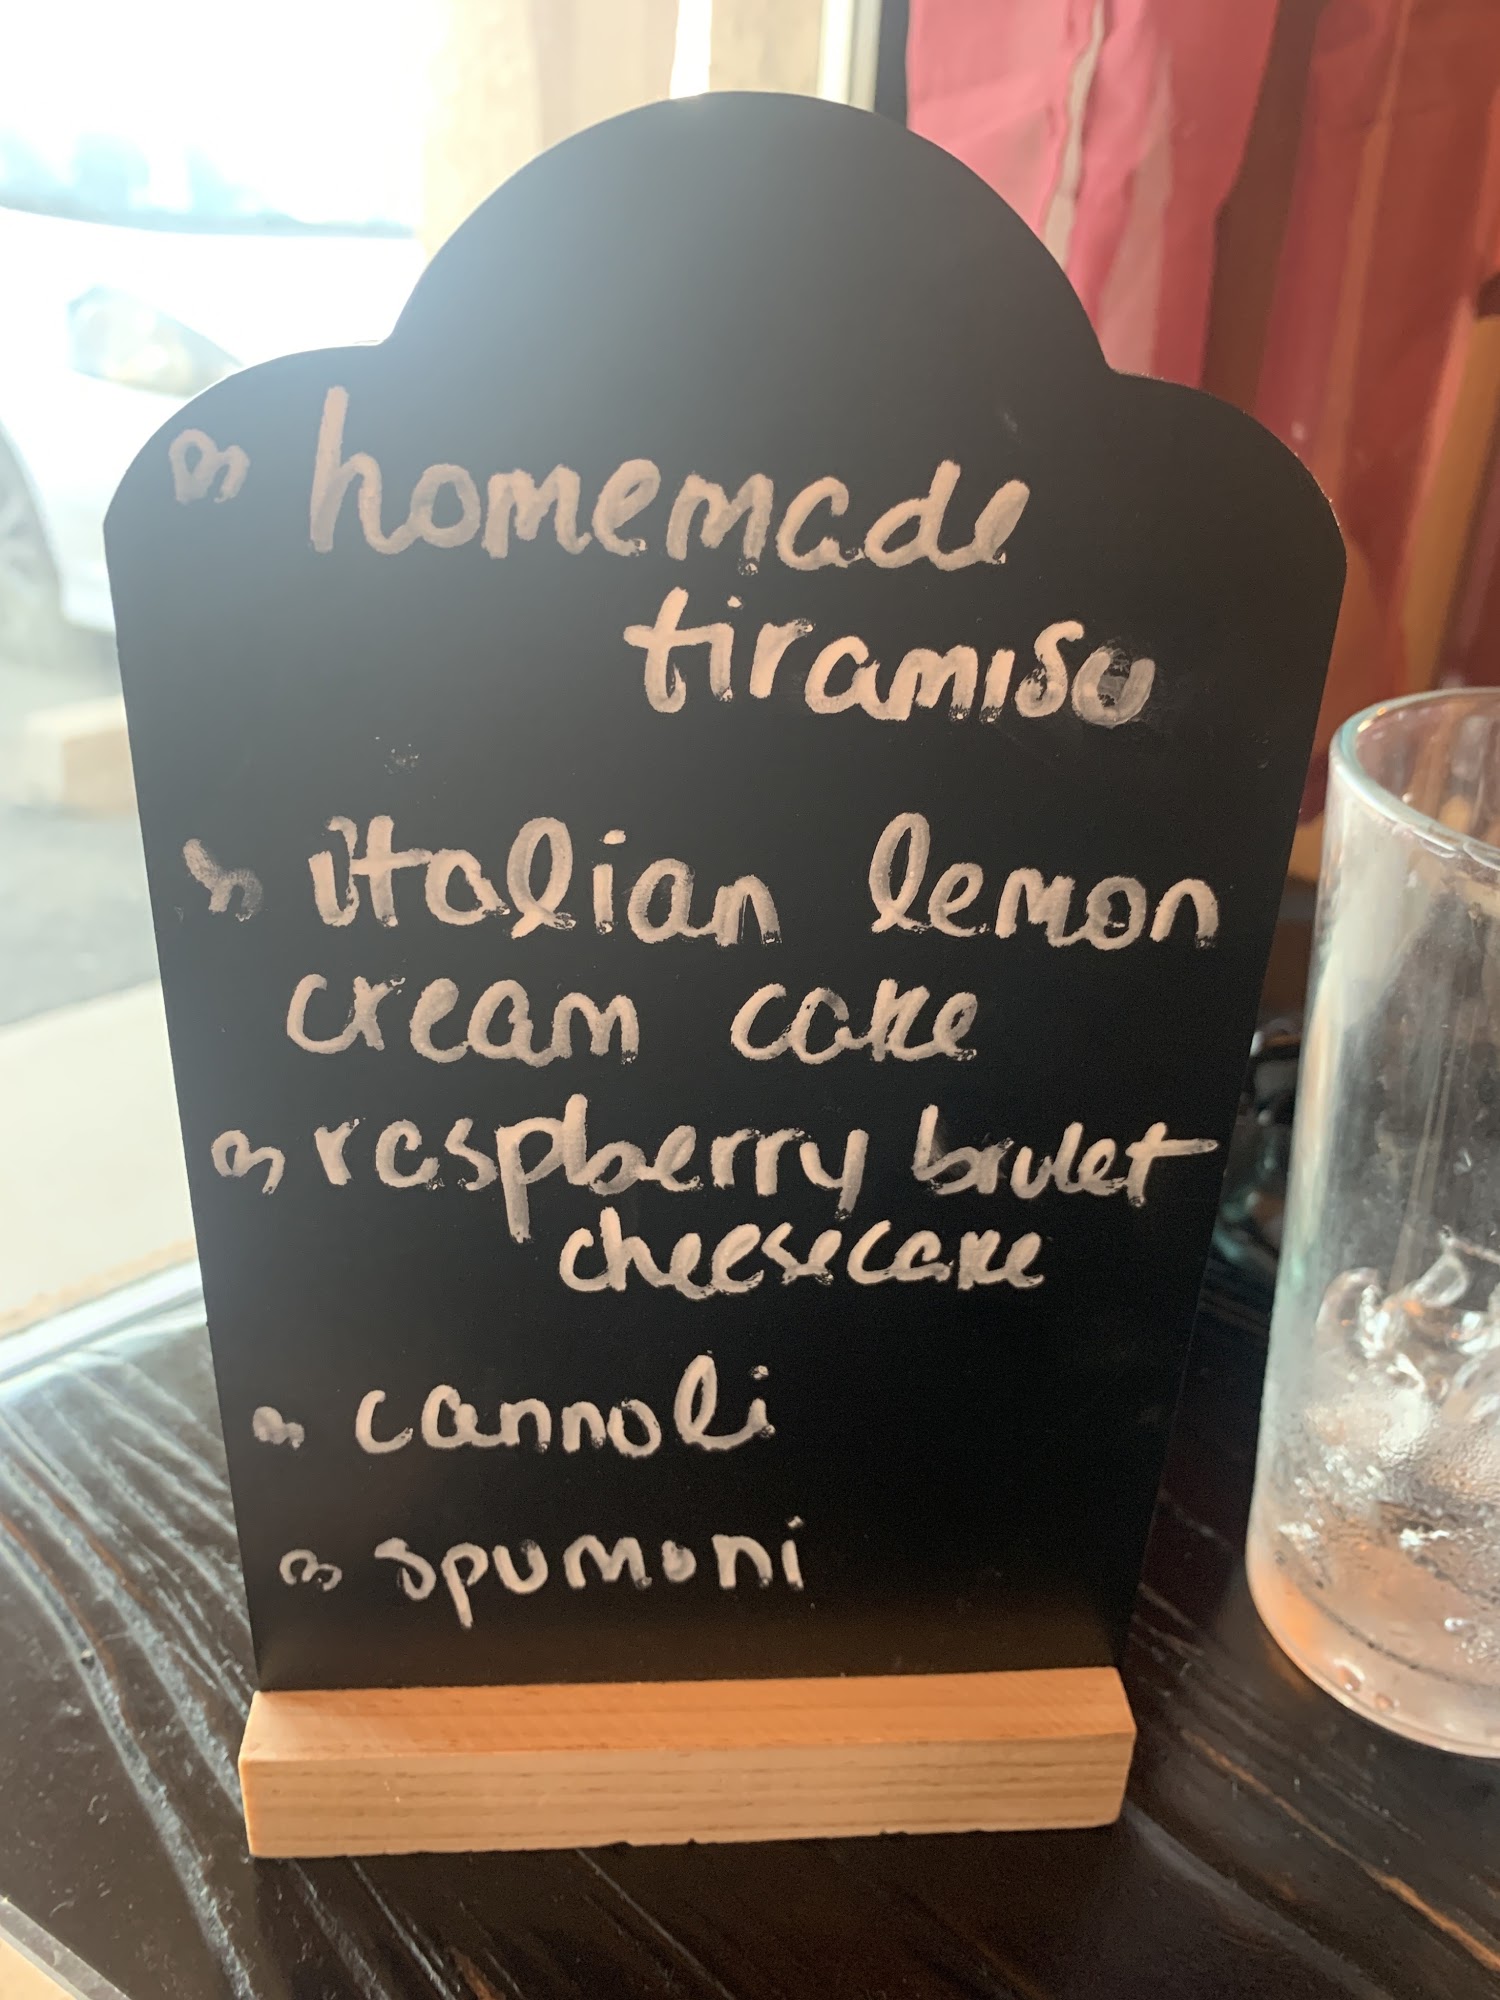 homemade
tiramisu
italian lemon
cream cake
raspberry brulet
cheesecake
cannoli
spumoni